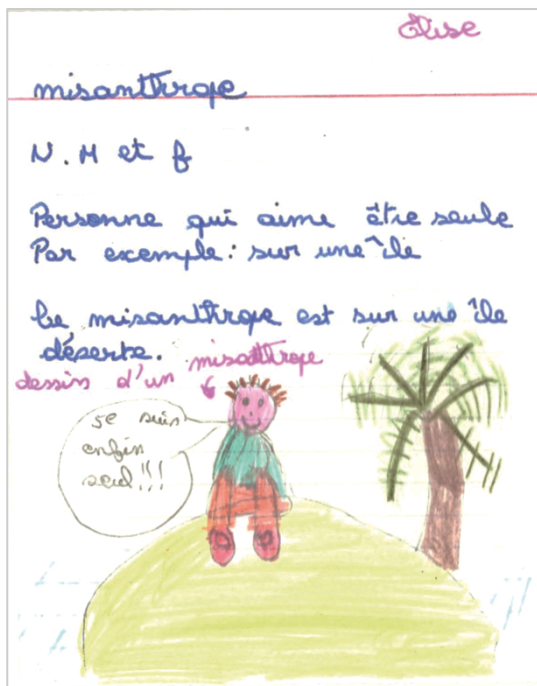 Élise
misanthrope
N.M et f
Personne qui aime être seule
Par exemple: sur une île
Le misanthrope est sur une île
déserte.
dessin d'un misatthrope
Je suis
enfin
seul!!!